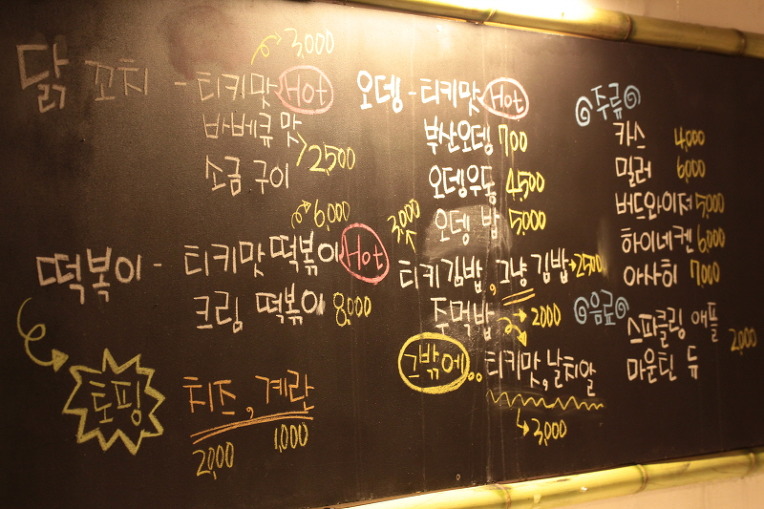 3,000
닭 꼬치 - 티키맛 Hot
바베큐 맛
소금 구이
2,500
6,000
떡볶이 - 티키맛 떡볶이 Hot
크림 떡볶이 8,000
토핑
치즈, 계란
2,000 1,000
오뎅 - 티키맛 Hot
부산오뎅 700
오뎅우동 4,500
오뎅 밥 5,000
3,000
티키김밥, 그냥 김밥 → 2500
주먹밥 → 2000
그밖에.. 티키맛, 날치알
↳ 3,000
주류
카스 4,000
밀러 6,000
버드와이저 5,000
하이네켄 6,000
아사히 7,000
음료
스파클링 애플
마운틴 듀
2,000